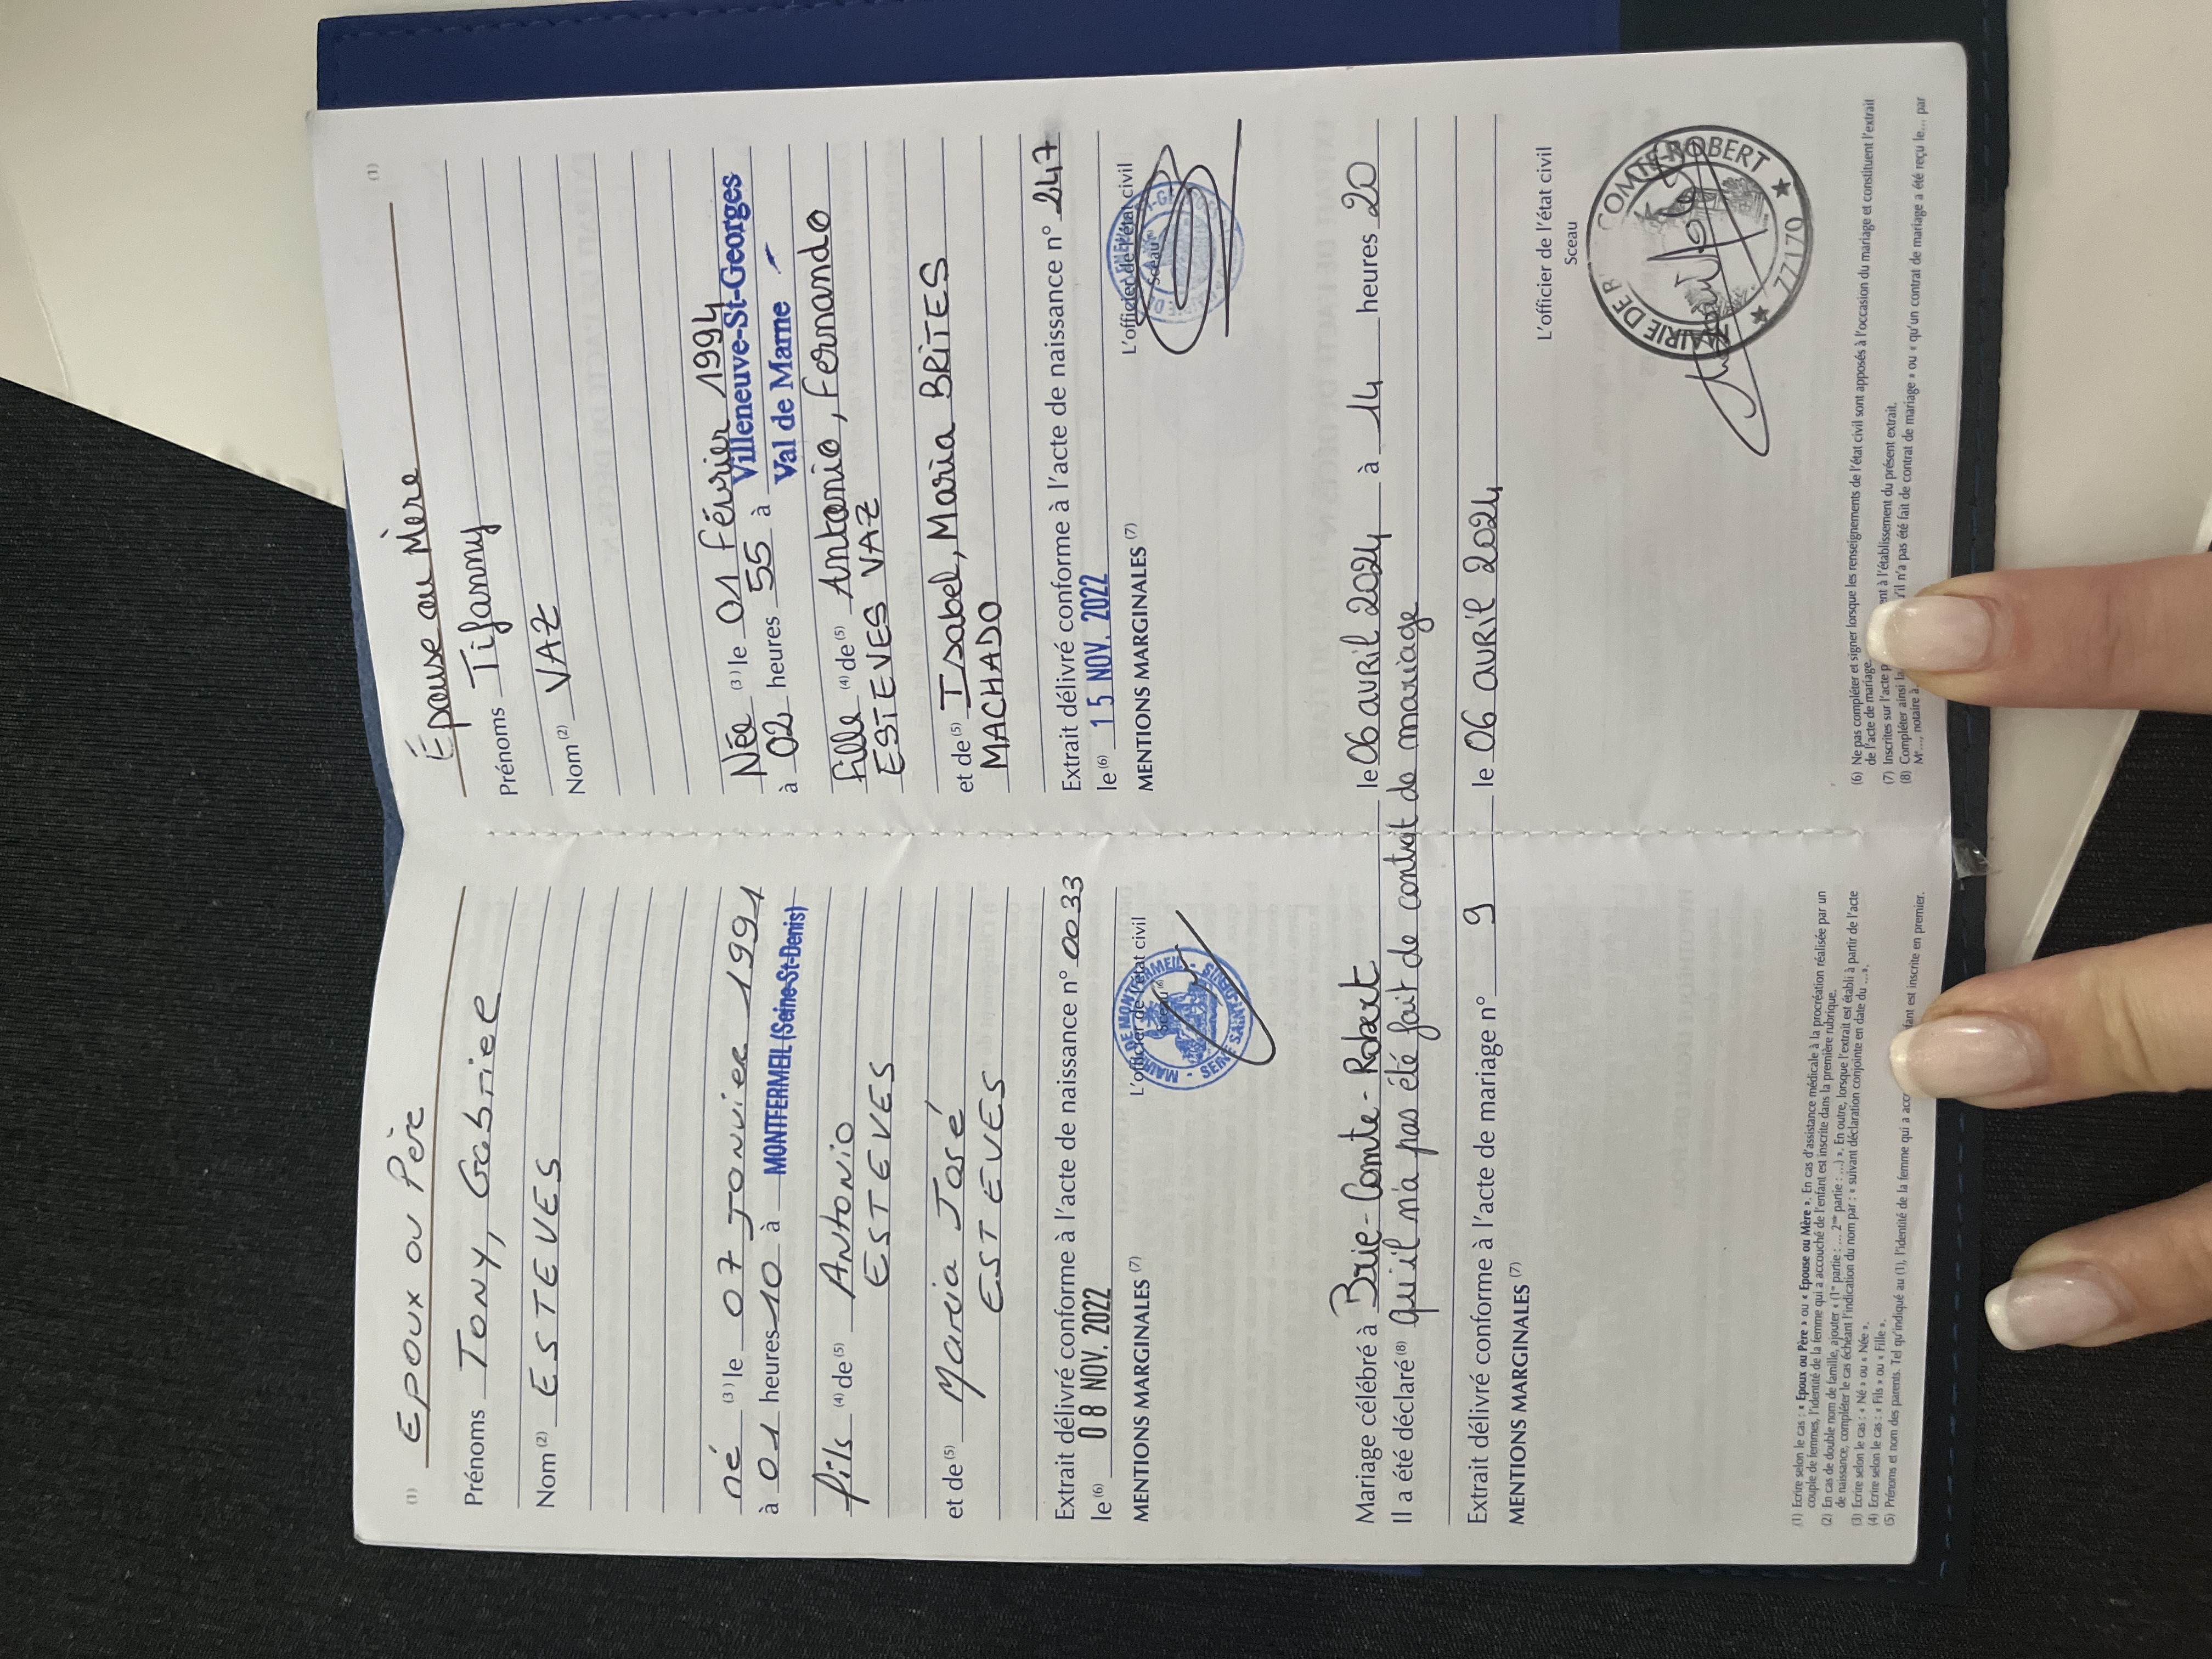 (1) Epoux ou Père
Prénoms Tony, Gabriel
Nom (2) ESTEVES
né (3) le 07 Janvier 1991
à 01 heures 10 à MONTFERMEIL (Seine-St-Denis)
fils (4) de (5) Antonio
ESTEVES
et de (5) Maria José
ESTEVES
Extrait délivré conforme à l'acte de naissance n° 0033
le (6) 08 NOV. 2022
L'officier de l'état civil
Sceau
MAIRIE DE MONTFERMEIL
SEINE SAINT
MENTIONS MARGINALES (7)
(1)
Épouse ou Mère
Prénoms Tifanny
Nom (2) VAZ
Née (3) le 01 Février 1994
à 02 heures 55 à Villeneuve-St-Georges
Val de Marne
fille (4) de (5) Antonio, Fernando
ESTEVES VAZ
et de (5) Isabel, Maria BRITES
MACHADO
Extrait délivré conforme à l'acte de naissance n° 247
le (6) 15 NOV. 2022
L'officier de l'état civil
Sceau
MENTIONS MARGINALES (7)
Mariage célébré à Brie-Comte-Robert le 06 avril 2024 à 14 heures 20
Il a été déclaré (8) qu'il n'a pas été fait de contrat de mariage
Extrait délivré conforme à l'acte de mariage n° 9 le 06 avril 2024
MENTIONS MARGINALES (7)
L'officier de l'état civil
Sceau
MAIRIE DE B COMTE-ROBERT
★ 77170 ★
(1) Ecrire selon le cas : « Epoux ou Père » ou « Epouse ou Mère ». En cas d'assistance médicale à la procréation réalisée par un
couple de femmes, l'identité de la femme qui a accouché de l'enfant est inscrite dans la première rubrique.
(2) En cas de double nom de famille, ajouter « (1re partie : ... 2nde partie : ...) ». En outre, lorsque l'extrait est établi à partir de l'acte
de naissance, compléter le cas échéant l'indication du nom par : « suivant déclaration conjointe en date du ... ».
(3) Ecrire selon le cas : « Né » ou « Née ».
(4) Ecrire selon le cas : « Fils » ou « Fille ».
(5) Prénoms et nom des parents. Tel qu'indiqué au (1), l'identité de la femme qui a est inscrite en premier.
(6) Ne pas compléter et signer lorsque les renseignements de l'état civil sont apposés à l'occasion du mariage et constituent l'extrait
de l'acte de mariage.
(7) Inscrites sur l'acte à l'établissement du présent extrait.
(8) Compléter ainsi la n'a pas été fait de contrat de mariage » ou « qu'un contrat de mariage a été reçu le... par
Me..., notaire à